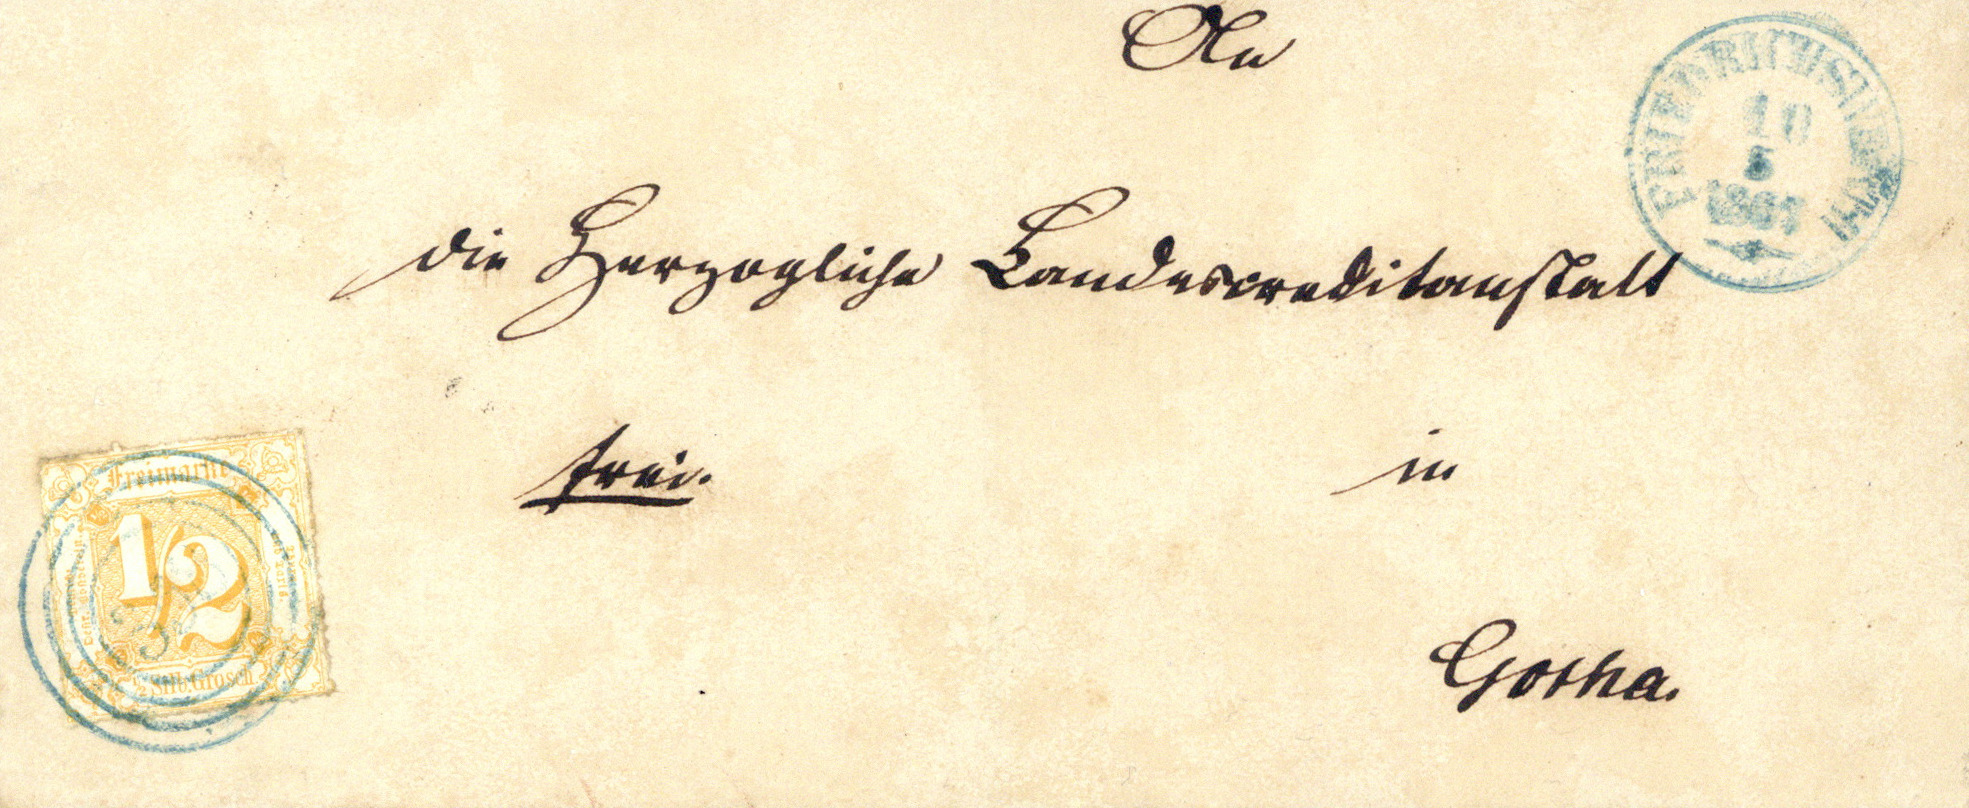 An
FRIEDRICHSWERTH
10
5
1867
die Herzogliche Landescreditanstalt
frei.
in
Freimarke
1/2
1/2 Silb. Grosch.
Gotha.